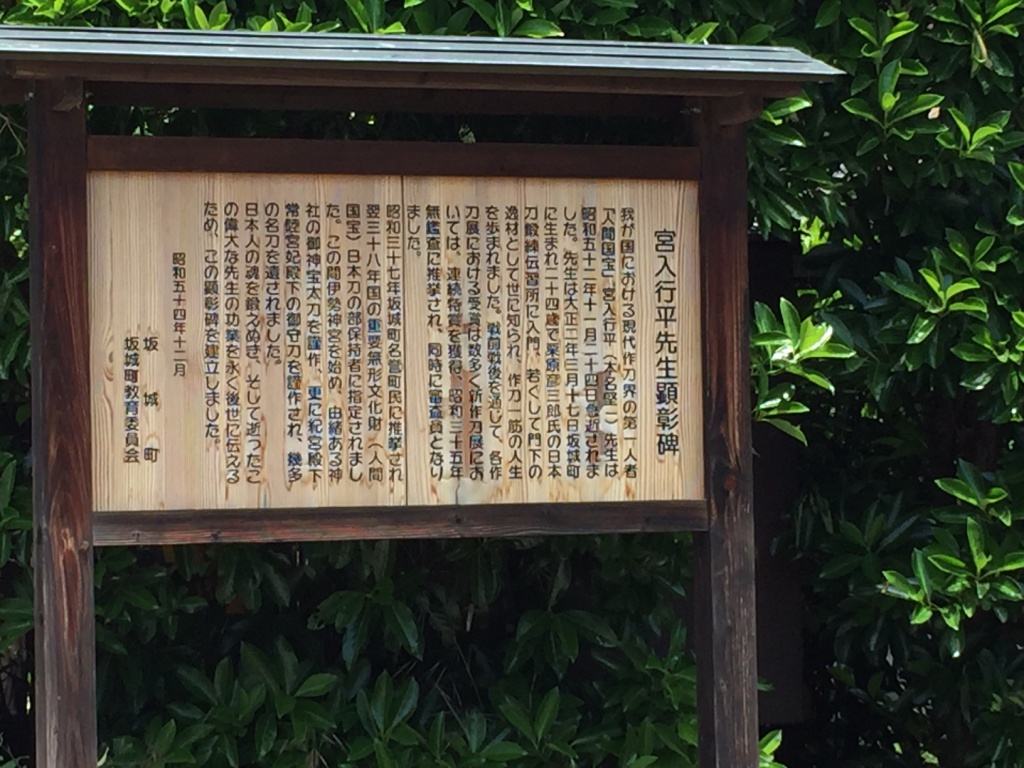 宮入行平先生顕彰碑
我が国における現代作刀界の第一人者
「人間国宝」宮入行平（本名堅一）先生は
昭和五十二年十一月二十四日急逝されま
した。先生は大正二年三月十七日坂城町
に生まれ二十四歳で栗原彦三郎氏の日本
刀鍛練伝習所に入門、若くして門下の
逸材として世に知られ、作刀一筋の人生
を歩まれました。戦前戦後を通じて、各作
刀展における受賞は数多く新作刀展にお
いては、連続特賞を獲得、昭和三十五年
無鑑査に推挙され、同時に審査員となり
ました。
昭和三十七年坂城町名誉町民に推挙され
翌三十八年国の重要無形文化財（人間
国宝）日本刀の部保持者に指定されまし
た。この間伊勢神宮を始め、由緒ある神
社の御神宝太刀を謹作、更に紀宮殿下
常陸宮妃殿下の御守刀を謹作され、幾多
の名刀を遺されました。
日本人の魂を鍛えぬき、そして逝ったこ
の偉大な先生の功業を永く後世に伝える
ため、この顕彰碑を建立しました。
昭和五十四年十二月
坂城町
坂城町教育委員会